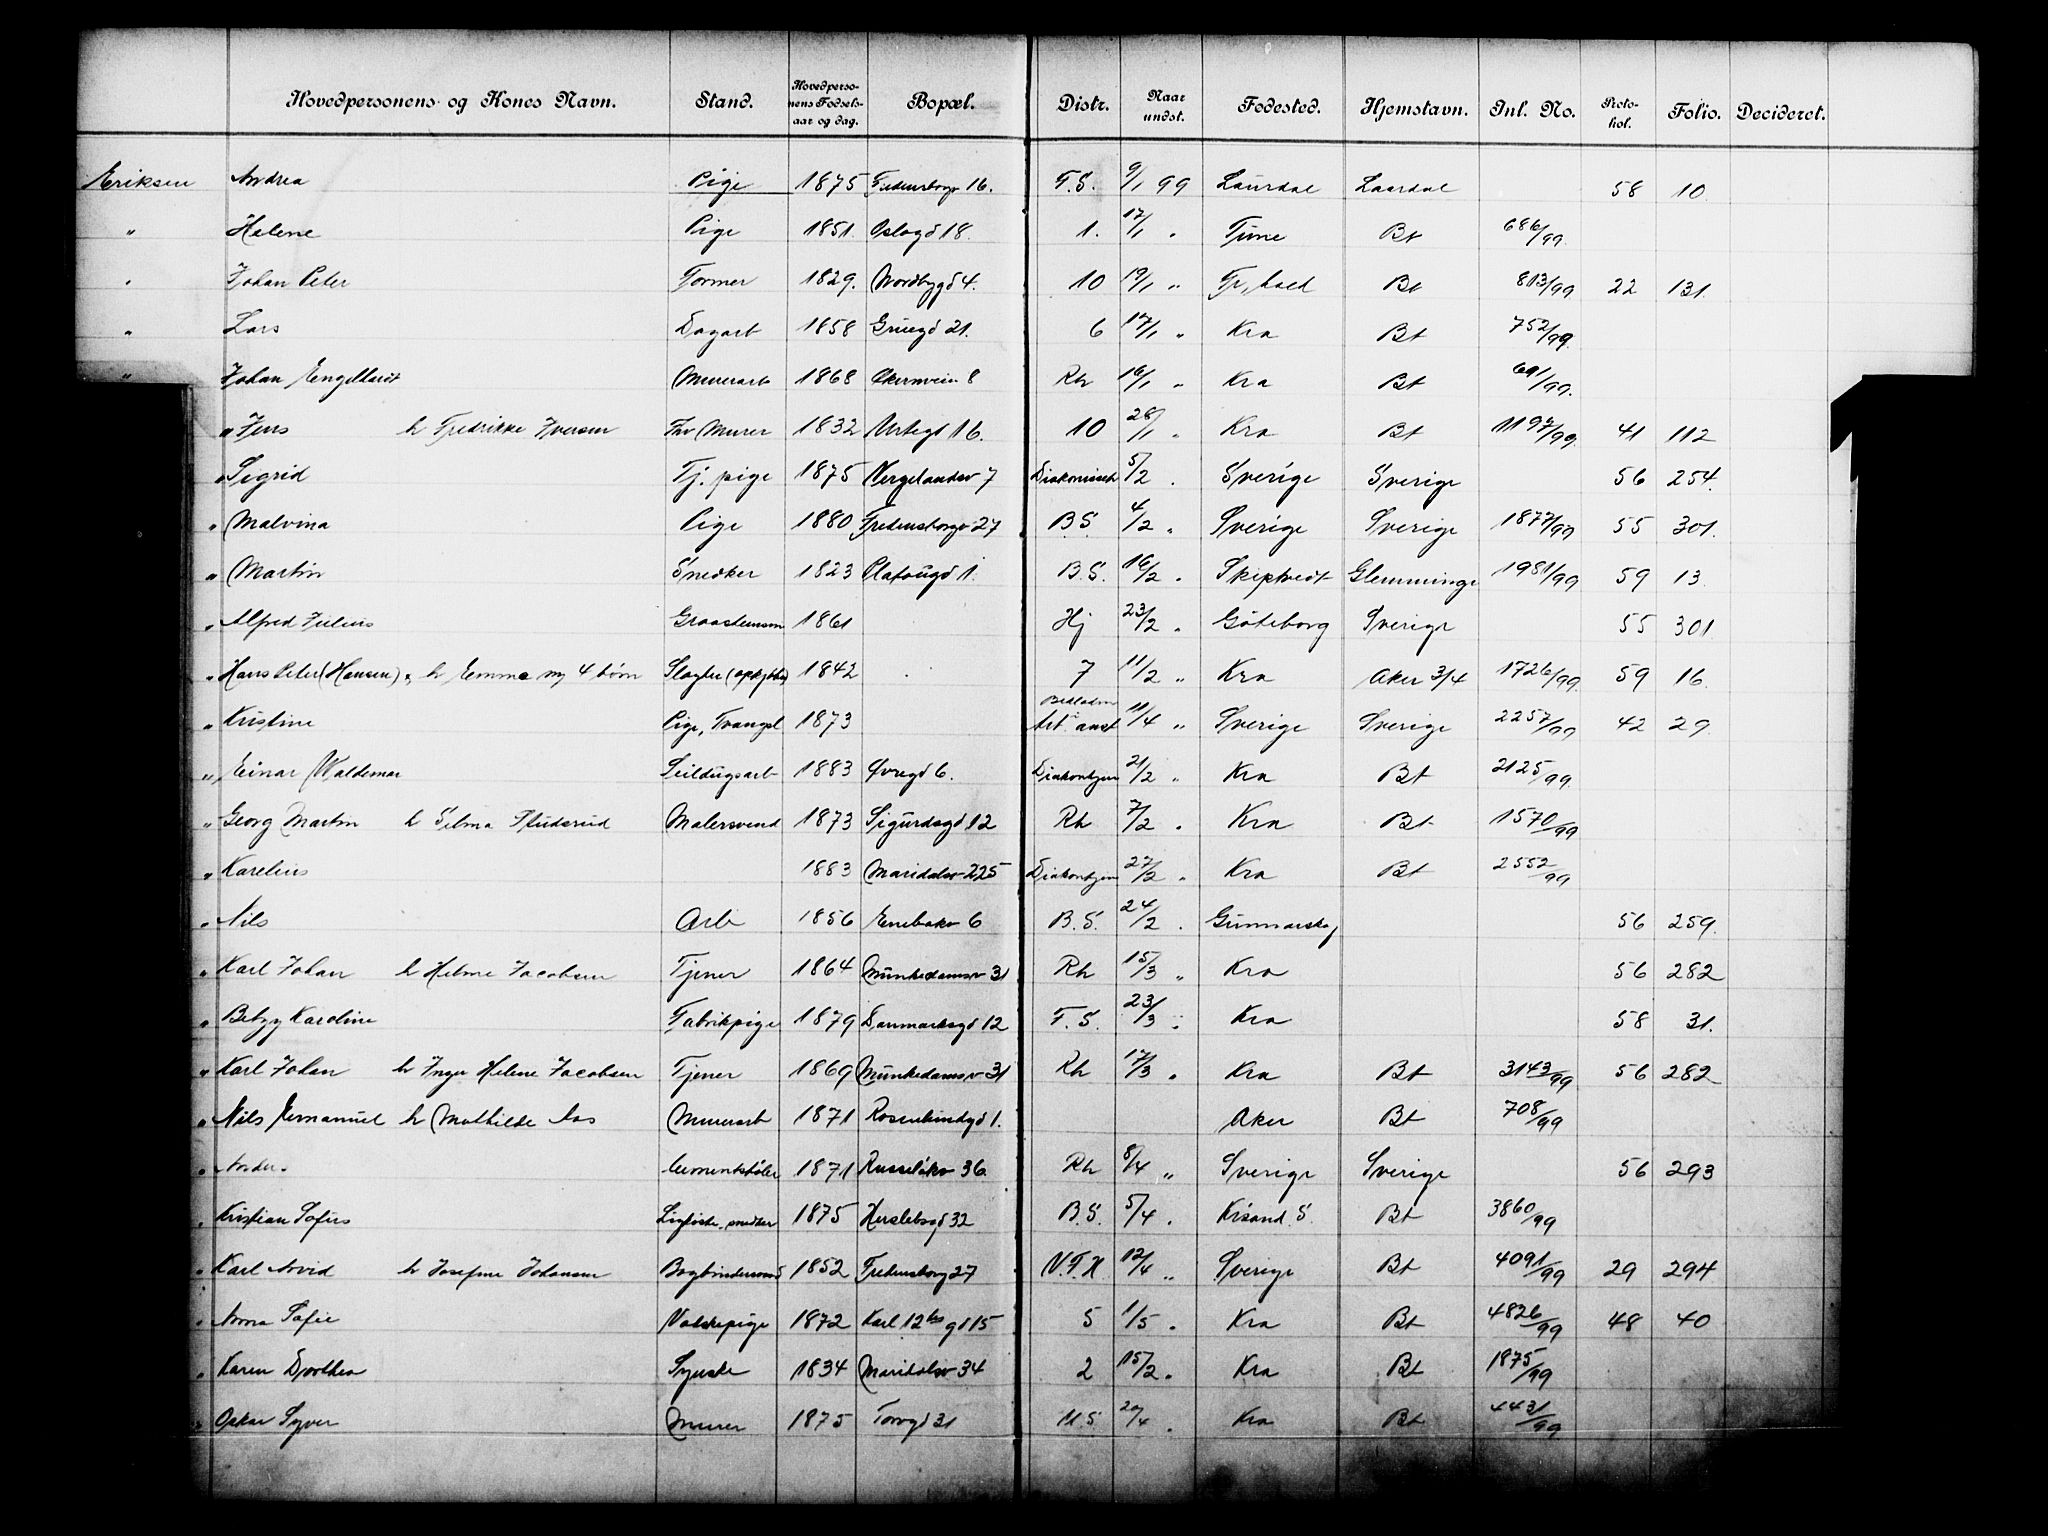 Hovedpersonens og Kones Navn. Stand. Hovedpersonens Fødselsaar og dag. Bopæl. Distr. Naar undst. Fødested. Hjemstavn. Inl. No. Protokol. Folio. Decideret.
Eriksen Andrea Pige 1875 Fredensborgv 16. F.S. 9/1 99 Laurdal Laardal 58 10.
" Helene Pige 1851 Oslogd 18. 1. 17/1 " Tune Bt 686/99.
" Johan Peter Former 1829. Nordbygd 4. 10 19/1 " Fr,hald Bt 813/99 22 131.
" Lars Dagarb 1858 Grünegd 21. 6 17/1 " Kra Bt 752/99.
" Johan Engelhardt Murerarb 1868 Økernvein 8 Rh 16/1 " Kra Bt 691/99.
" Jens h Fredrikke Iversen Fhv Murer 1832 Urtegd 16. 10 28/1 " Kra Bt 1197/99. 41 112
" Sigrid Tj. pige 1875 Vergelandsv 7 Diakonisseh 5/2 " Sverige Sverige 56 254.
" Malvina Pige 1880 Fredensborgv 27 B.S. 4/2 " Sverige Sverige 1877/99 55 301.
" Martin Snedker 1823 Platougd 1. B.S. 16/2 " Skiptvedt Glemminge 1981/99 59 13.
" Alfred Julius Graastensm 1861 Hj 23/2 " Göteborg Sverige 55 301
" Hans Peter (Hansen) h Emma m/ 4 børn Slagter 1842 7 11/2 " Kra Aker 3/4 1726/99. 59 16.
" Kristine Pige, Tvangsl 1873 Arb. anst 11/4 " Sverige Sverige 2257/99 42 29.
" Einar Waldemar Seildugsarb 1883 Øvregd 6. Diakonhjem 21/2 " Kra Bt 2125/99.
" Georg Martin h Selma Studsrud Malersvend 1873 Sigurdsgd 12 Rh 7/2 " Kra Bt 1570/99
" Karelius 1883 Maridalsv 225 Diakonhjem 27/2 " Kra Bt 2552/99
" Nils Arb 1856 Enebakv 6 B.S. 24/2 " Gunnarskog 56 259.
" Karl Johan h Helene Jacobsen Tjener 1864 Munkedamsv 31 Rh 15/3 " Kra 56 282
" Betzy Karoline Fabrikpige 1879 Danmarksgd 12 F.S. 23/3 " Kra 58 31.
" Karl Johan h Inger Helene Jacobsen Tjener 1869 Munkedamsv 31 Rh 17/3 " Kra Bt 3143/99 56 282
" Nils Emanuel h Mathilde Aas Murerarb 1871 Rosenlundgd 1. Aker Bt 708/99
" Anders Cementstøber 1871 Russeløkv 36 Rh 8/4 " Sverige Sverige 56 293
" Kristian Sofus Ligkiste, snedker 1875 Herslebsgd 32 B.S. 5/4 " Krsand S. Bt 3860/99
" Karl Arvid h Josefine Johansen Bogbindersvend 1852 Fredensborg 27 V.F.H 12/4 " Sverige Bt 4091/99 29 294
" Anna Sofie Vaskepige 1872 Karl 12tes gd 15 5 1/5 " Kra Bt 4826/99 48 40
" Karen Dorthea Syerske 1834 Maridalsv 34 2 15/2 " Kra Bt 1875/99
" Oskar Syver Murer 1875 Torvgd 31 U.S. 20/4 " Kra Bt 4431/99